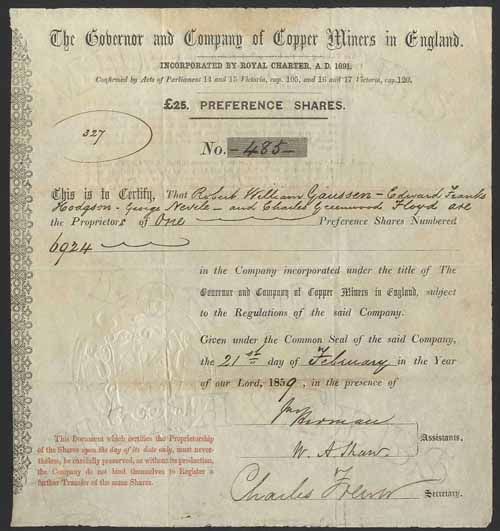 The Governor and Company of Copper Miners in England.
INCORPORATED BY ROYAL CHARTER, A.D. 1691.
Confirmed by Acts of Parliament 14 and 15 Victoria, cap. 105, and 16 and 17 Victoria, cap. 120.
£25. PREFERENCE SHARES.
327
No. -485-
This is to Certify, That Robert William Gaussen - Edward Franks
Hodgson - George Nevile - and Charles Greenwood Floyd are
the Proprietors of One Preference Shares Numbered
6924
in the Company incorporated under the title of The
Governor and Company of Copper Miners in England, subject
to the Regulations of the said Company.
Given under the Common Seal of the said Company,
the 21st day of February in the Year
of our Lord, 1859, in the presence of
Assistants.
W. A. Shaw
Charles Secretary.
This Document which certifies the Proprietorship
of the Shares upon the day of its date only, must never-
theless, be carefully preserved, as without its production,
the Company do not bind themselves to Register a
further Transfer of the same Shares.